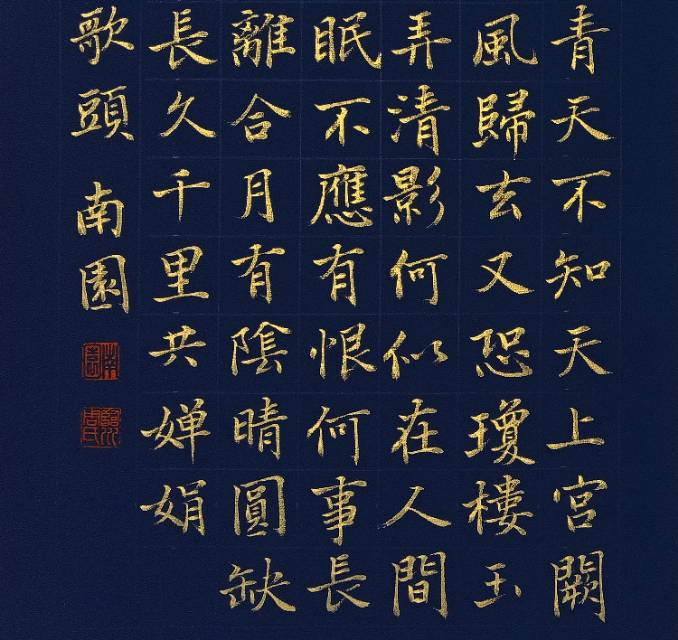 青天不知天上宮闕
風歸玄又恐瓊樓玉
弄清影何似在人間
眠不應有恨何事長
離合月有陰晴圓缺
長久千里共婵娟
歌頭 南園